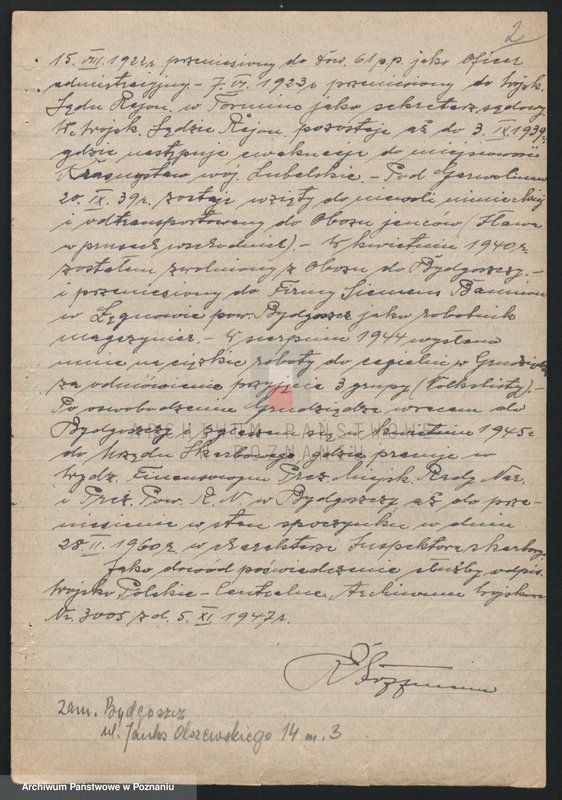 2
15. VIII. 1922r przeniesiony do Dow. 61 p.p. jako oficer
administracyjny – 7. VI. 1923r przeniesiony do Wojsk.
Sądu Rejon. w Toruniu jako sekretarz sądowy
W Wojsk. Sądzie Rejon. pozostaje aż do 3. IX 1939r.
gdzie następuje ewakuacja do miejscowości
Krasnystaw woj. Lubelskie – Pod
20. IX. 39r. zostaję wzięty do niewoli niemieckiej
i odtransportowany do Obozu jeńców (Iława
w prusach wschodnich). – W kwietniu 1940r
zostałem zwolniony z Obozu do Bydgoszczy. –
i przeniesiony do Firmy Siemens
w Łęgnowie pow. Bydgoszcz jako robotnik
magazynier. – W sierpniu 1944 wysłano
mnie na ciężkie roboty do cegielni w Grudziądz
za odmówienie przyjęcia 3 grupy (Volkslisty). –
Po oswobodzeniu Grudziądza wracam do
Bydgoszczy i zgłaszam się w kwietniu 1945r
do Urzędu Skarbowego gdzie pracuję w
Wydz. Finansowym Prez. Miejsk. Rady Nar.
i Prez. Pow. R. N. w Bydgoszczy aż do prze-
niesienia w stan spoczynku w dniu
28. II. 1960r w charakterze Inspektora skarbow.
Jako dowód poświadczenie służby odpis.
Wojsko Polskie – Centralne Archiwum Wojskowe
Nr. 3005 z d. 5. XI. 1947r.
zam. Bydgoszcz
ul. Janka Olszewskiego 14 m. 3
ARCHIWUM PAŃSTWOWE
W POZNANIU
Archiwum Państwowe w Poznaniu